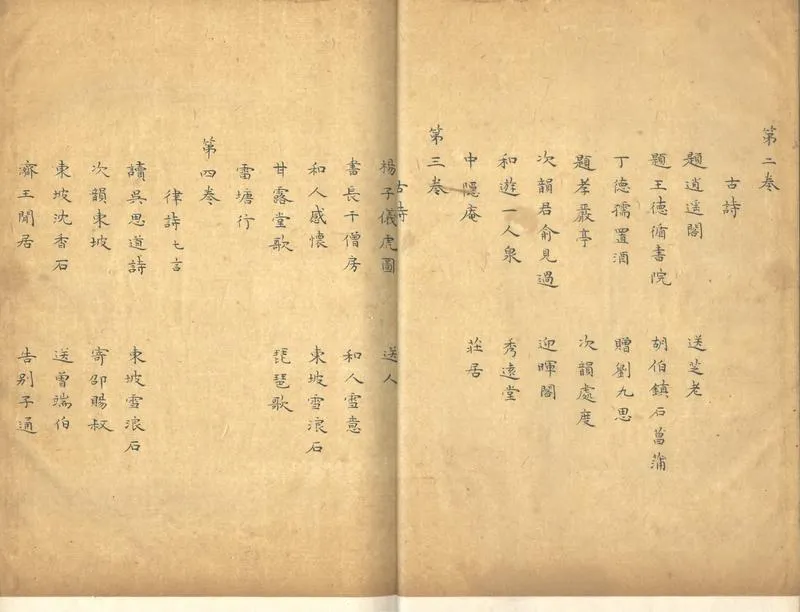 第二卷
古詩
題逍遥閣 送芝老
題王德脩書院 胡伯鎮石菖蒲
丁德孺置酒 贈劉九思
題孝嚴亭 次韻處度
次韻君俞見過 迎暉閣
和遊一人泉 秀遠堂
中隱庵 莊居
第三卷
古詩
楊子儀虎圖 送人
書長干僧房 和人雪意
和人感懷 東坡雪浪石
甘露堂歌 琵琶歌
雷塘行
第四卷
律詩七言
讀吳思道詩 東坡雪浪石
次韻東坡 寄邵賜叔
東坡沈香石 送曾端伯
濟王閒居 告别子通